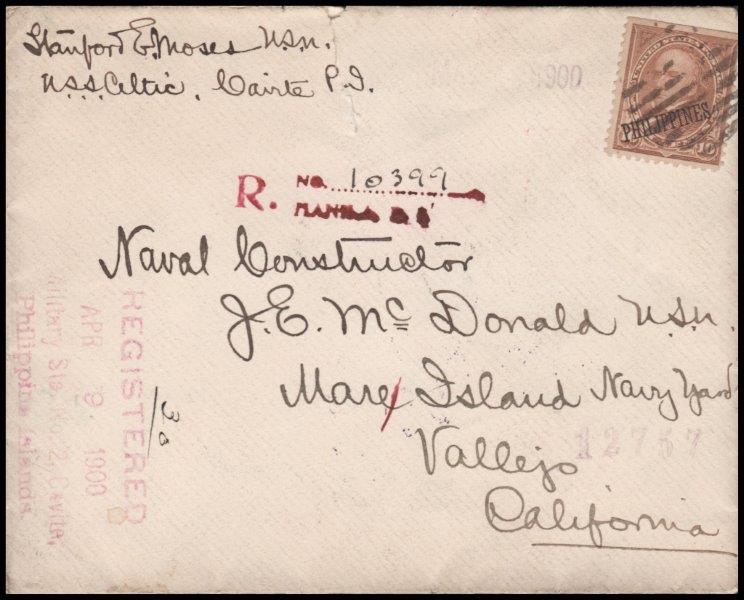 Stanford E. Moses U.S.N.
U.S.S. Celtic, Cavite P.I.
1900
UNITED STATES
PHILIPPINES
R. No. 10399
MANILA
Naval Constructor
J. E. Mc Donald U.S.N.
Mare Island Navy Yard
Vallejo
California
12757
REGISTERED
APR 9 1900
Military Sta. No. 2, Cavite,
Philippine Islands.